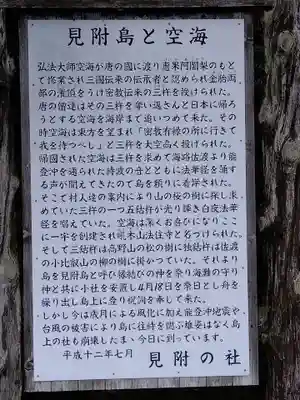 見附島と空海
弘法大師空海が唐の國に渡り恵果阿闍梨のもと
で修業され三國伝来の伝承者と認められ金胎両
部の灌頂をうけ密教伝来の三杵を授けられた。
唐の僧達はその三杵を奪い返さんと日本に帰ろ
うとする空海を海岸まで追いつめて来た。その
時空海は東方を望まれ「密教有縁の所に行きて
我を待つべし」と三杵を大空高く投げられた。
帰國された空海は三杵を求めて海路佐渡より能
登沖を通られた時波の音とともに法華経を誦す
る声が聞えてきたので島を頼りに着岸された。
そこで村人達の案内により山の桜の樹に探し求
めていた三杵の一つ五鈷杵が光り輝き自度法華
経を唱えていた。空海は深くお喜びになりここ
に一宇を創建され吼木山法住寺と名づけられた。
そして三鈷杵は高野山の松の樹に独鈷杵は佐渡
の小比叡山の柳の樹に掛かっていた。それより
島を見附島と呼び縁結びの神を祭り海難の守り
神と共に小社を安置し4月18日を祭日とし舟を
繰り出し島上に登り祝詞を奉して来た。
しかし今は歳月による風化に加え能登沖地震や
台風の被害により島に往時を偲ぶ雄姿はなく島
上の社も崩壊したまゝ今日に到っています。
平成十二年七月 見附の社